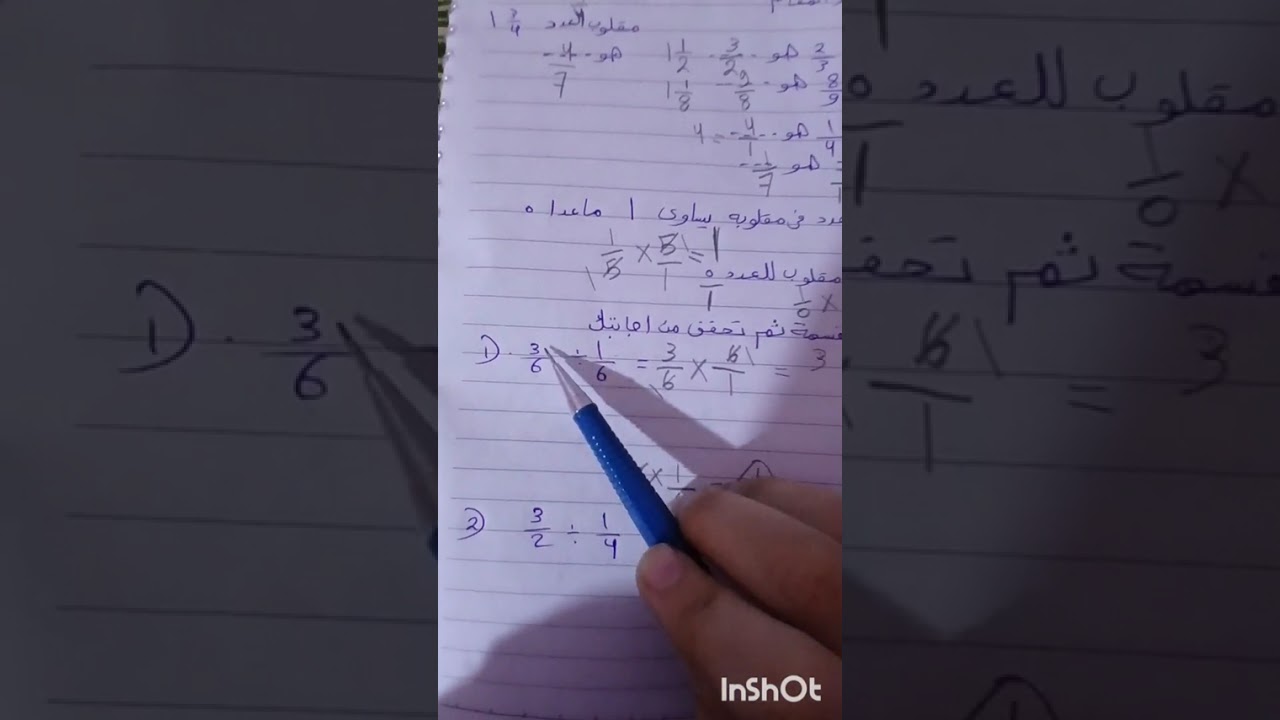 مقلوب العدد 1 3/4
هو 4/7
2/3 هو 3/2 1 1/2
8/9 هو 9/8 1 1/8
1/4 هو 4/1 = 4
هو 1/7
عدد في مقلوبه يساوى 1 ماعدا 0
1/5 × 5/1 = 1
مقلوب للعدد 0/1 1/0 ×
قسمة ثم تحقق من اجابتك
1) 3/6 ÷ 1/6 = 3/6 × 6/1 = 3
× 1
2) 3/2 ÷ 1/4
InShOt